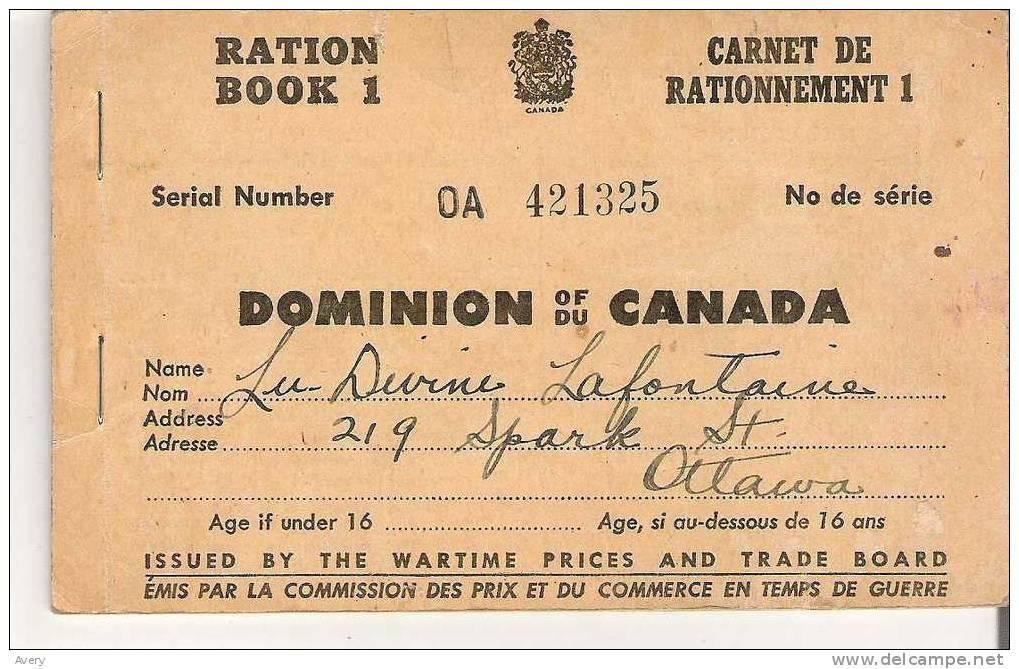 RATION
BOOK 1
CANADA
CARNET DE
RATIONNEMENT 1
Serial Number OA 421325 No de série
DOMINION OF DU CANADA
Name
Nom Lu-Divine Lafontaine
Address
Adresse 219 Spark St.
Ottawa
Age if under 16 Age, si au-dessous de 16 ans
ISSUED BY THE WARTIME PRICES AND TRADE BOARD
ÉMIS PAR LA COMMISSION DES PRIX ET DU COMMERCE EN TEMPS DE GUERRE
Avery
www.delcampe.net